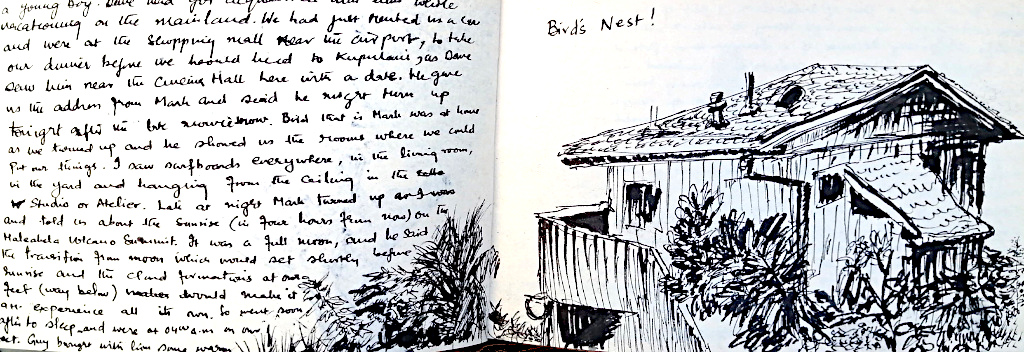 a young boy. Dave had got
vacationing on the mainland. We had just rented us a car
and were at the shopping mall near the airport, to take
our dinner before we headed to as Dave
saw him near the Cinema Hall here with a date. He gave
us the address from Mark and said he might turn up
tonight after the late movie show. Bird that is Mark was at home
as we turned up and he showed us the rooms where we could
Put our things. I saw surfboards everywhere, in the living room,
in the yard and hanging from the ceiling in the
Studio or Atelier. Late at night Mark turned up as I was
and told us about the Sunrise (in four hours from now) on the
Haleakala Volcano Summit. It was a full moon, and he said
the transition from moon which would set shortly before
Sunrise and the cloud formations at our
feet (way below) would make it
an experience all its own. So went soon
to sleep and were at 04 a.m in our
Guy brought with him some warm
Bird's Nest!